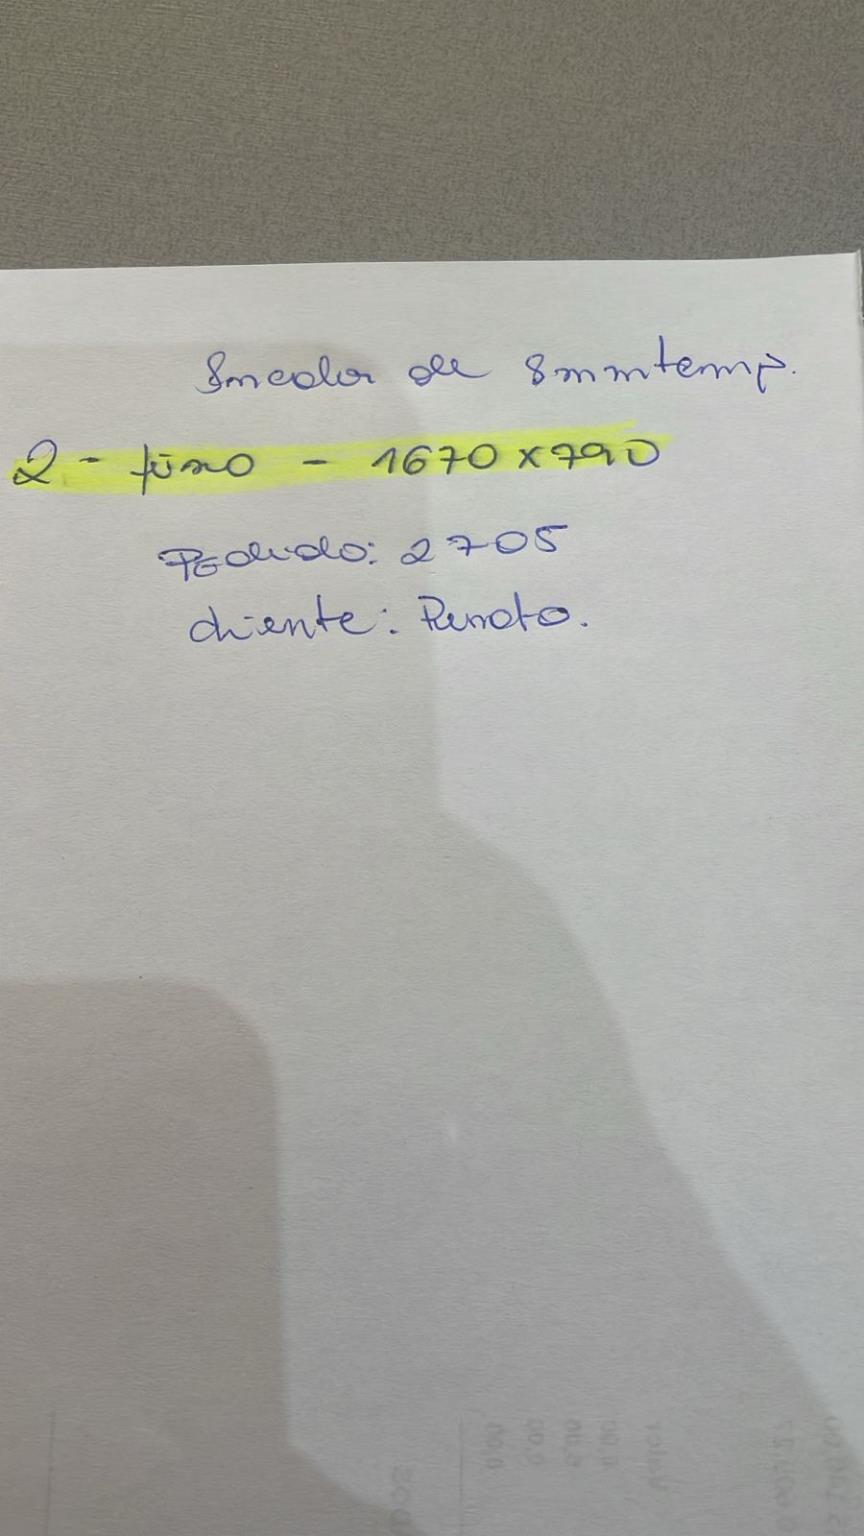 Incolor de 8mm temp.
2 - fixo - 1670 x 790
Pedido: 2705
cliente: Renato.